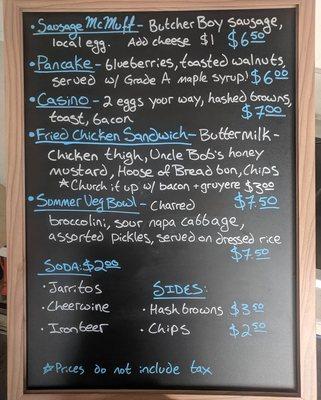 • Sausage McMuff - Butcher Boy sausage,
local egg. Add cheese $1 $6.50
• Pancake - blueberries, toasted walnuts,
served w/ Grade A maple syrup! $6.00
• Casino - 2 eggs your way, hashed browns,
toast, bacon $7.00
• Fried Chicken Sandwich - Buttermilk-
Chicken thigh, Uncle Bob's honey
mustard, House of Bread bun, Chips
*Church it up w/ bacon + gruyere $3.00
• Sommer Veg Bowl - Charred $7.50
broccolini, sour napa cabbage,
assorted pickles, served on dressed rice
$7.50
SODA: $2.00
• Jarritos
• Cheerwine
• Ironbeer
SIDES:
• Hashbrowns $3.50
• Chips $2.50
*Prices do not include tax